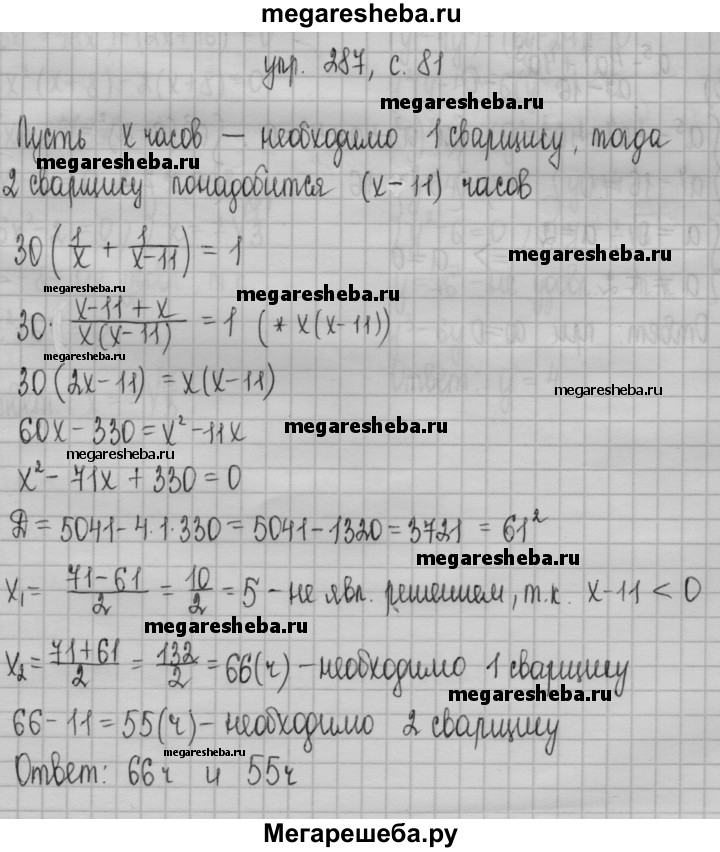 megaresheba.ru
упр. 287, с. 81
megaresheba.ru
Пусть x часов — необходимо 1 сварщику, тогда
megaresheba.ru
2 сварщику понадобится (x-11) часов
30(1/x + 1/(x-11)) = 1
megaresheba.ru
megaresheba.ru
megaresheba.ru
30· (x-11+x)/(x(x-11)) = 1 (* x(x-11))
megaresheba.ru
30(2x-11) = x(x-11)
megaresheba.ru
60x - 330 = x² - 11x
megaresheba.ru
megaresheba.ru
x² - 71x + 330 = 0
Д = 5041 - 4·1·330 = 5041 - 1320 = 3721 = 61²
megaresheba.ru
x₁ = (71-61)/2 = 10/2 = 5 - не явл. решением, т.к. x-11 < 0
megaresheba.ru
x₂ = (71+61)/2 = 132/2 = 66(ч) - необходимо 1 сварщику
megaresheba.ru
66 - 11 = 55(ч) - необходимо 2 сварщику
megaresheba.ru
Ответ: 66ч и 55ч
Мегарешеба.ру